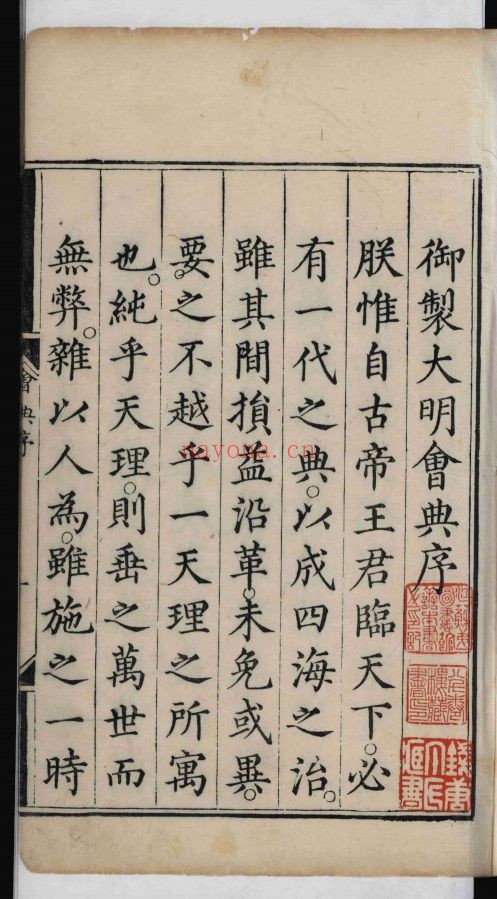 御製大明會典序
朕惟自古帝王君臨天下。必
有一代之典。以成四海之治。
雖其間損益沿革。未免或異。
要之不越乎一天理之所寓
也。純乎天理。則垂之萬世而
無弊。雜以人為。雖施之一時
會典序
nayona.cn